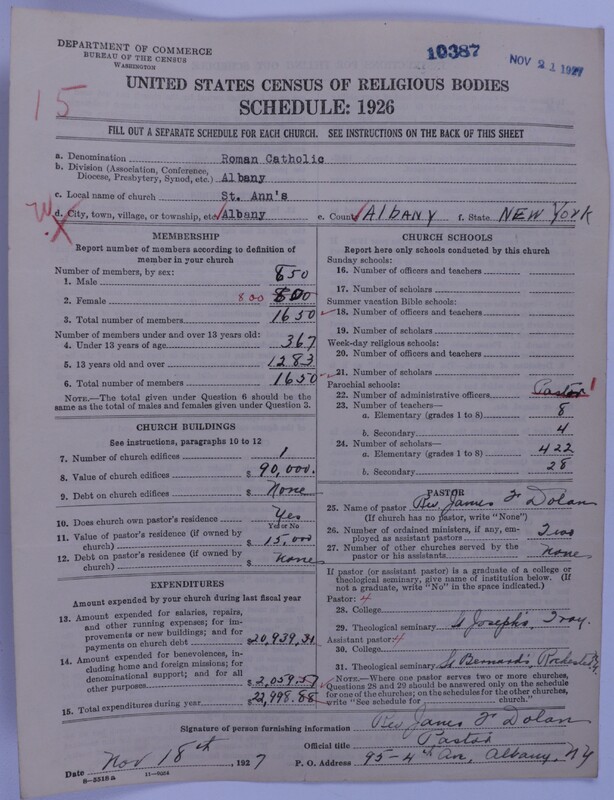 DEPARTMENT OF COMMERCE
BUREAU OF THE CENSUS
WASHINGTON
10387
NOV 21 1927
15
UNITED STATES CENSUS OF RELIGIOUS BODIES
SCHEDULE: 1926
FILL OUT A SEPARATE SCHEDULE FOR EACH CHURCH. SEE INSTRUCTIONS ON THE BACK OF THIS SHEET
a. Denomination Roman Catholic
b. Division (Association, Conference, Diocese, Presbytery, Synod, etc.) Albany
c. Local name of church St. Ann's
d. City, town, village, or township, etc. Albany e. County ALBANY f. State NEW YORK
MEMBERSHIP
Report number of members according to definition of
member in your church
Number of members, by sex:
1. Male 850
2. Female 800 800
3. Total number of members 1650
Number of members under and over 13 years old:
4. Under 13 years of age 367
5. 13 years old and over 1283
6. Total number of members 1650
NOTE.—The total given under Question 6 should be
same as the total of males and females given under Question 3.
CHURCH BUILDINGS
See instructions, paragraphs 10 to 12
7. Number of church edifices 1
8. Value of church edifices $ 90,000.
9. Debt on church edifices $ None
10. Does church own pastor's residence Yes
Yes or No
11. Value of pastor's residence (if owned by
church) $ 15,000
12. Debt on pastor's residence (if owned by
church) $ None
EXPENDITURES
Amount expended by your church during last fiscal year
13. Amount expended for salaries, repairs,
and other running expenses; for im-
provements or new buildings; and for
payments on church debt $20,939.31
14. Amount expended for benevolences, in-
cluding home and foreign missions; for
denominational support; and for all
other purposes $2,059.57
15. Total expenditures during year $22,998.88
CHURCH SCHOOLS
Report here only schools conducted by this church
Sunday schools:
16. Number of officers and teachers
17. Number of scholars
Summer vacation Bible schools:
18. Number of officers and teachers
19. Number of scholars
Week-day religious schools:
20. Number of officers and teachers
21. Number of scholars
Parochial schools:
22. Number of administrative officers Pastor 1
23. Number of teachers—
a. Elementary (grades 1 to 8) 8
b. Secondary 4
24. Number of scholars—
a. Elementary (grades 1 to 8) 422
b. Secondary 28
PASTOR
25. Name of pastor Rev. James F Dolan
(If church has no pastor, write "None")
26. Number of ordained ministers, if any, em-
ployed as assistant pastors Two
27. Number of other churches served by the
pastor or his assistants None
If pastor (or assistant pastor) is a graduate of a college or
theological seminary, give name of institution below. (If
not a graduate, write "No" in the space indicated.)
Pastor: 4
28. College
29. Theological seminary St Joseph's, Troy.
Assistant pastor: 4
30. College
31. Theological seminary St Bernard's, Rochester
NOTE.—Where one pastor serves two or more churches,
Questions 28 and 29 should be answered only on the schedule
for one of the churches; on the schedules for the other churches,
write "See schedule for church."
Signature of person furnishing information Rev. James F Dolan
Official title Pastor
Date Nov 18th, 1927 P. O. Address 95-4th Av, Albany, NY
8-5518a 11-8564